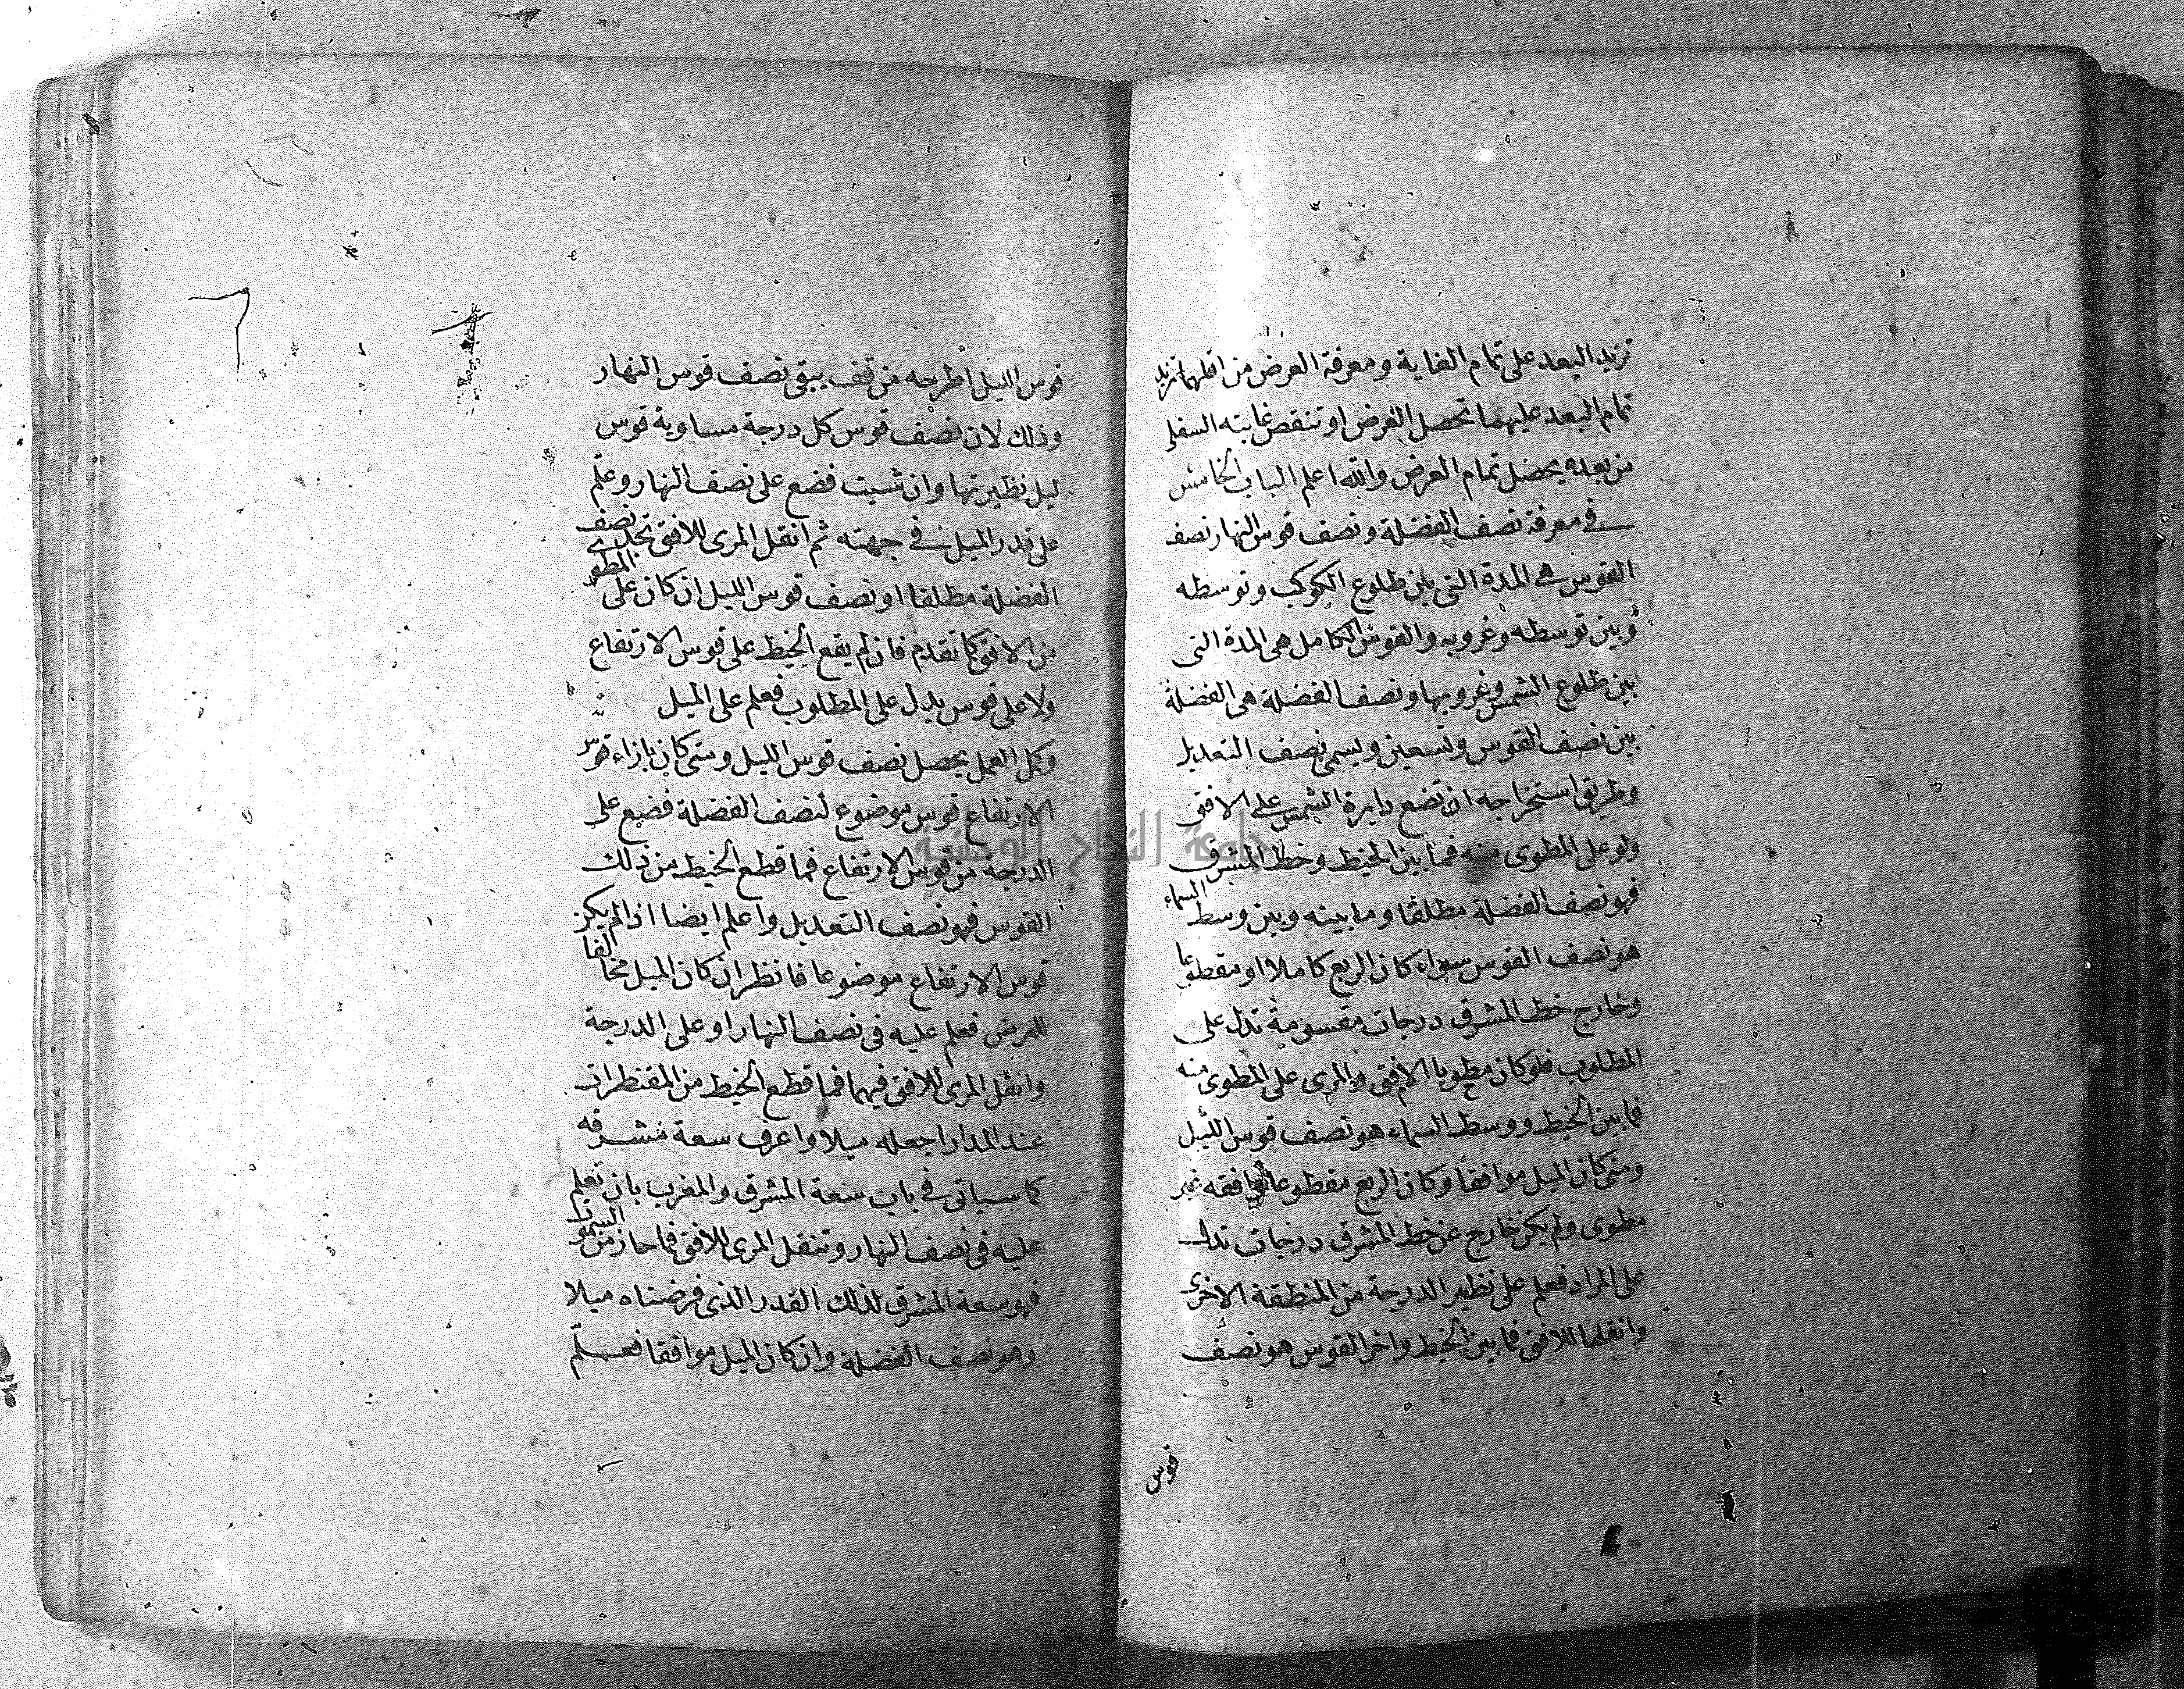 تزيد البعد على تمام الغاية ومعرفة العرض من اقلهما تزيد
تمام البعد عليهما تحصل العرض او تنقص غايته السفلى
من بعده يحصل تمام العرض والله اعلم الباب الخامس
في معرفة نصف الفضلة ونصف قوس النهار نصف
القوس هي المدة التى بين طلوع الكوكب وتوسطه
وبين توسطه وغروبه والقوس الكامل هى المدة التى
بين طلوع الشمس وغروبها ونصف الفضلة هى الفضلة
بين نصف القوس وتسعين ويسمى نصف التعديل
وطريق استخراجه ان تضع دايرة الشمس على الافق
ولو على المطوى منه فما بين الخيط وخط المشرق
فهو نصف الفضلة مطلقا وما بينه وبين وسط السماء
هو نصف القوس سواء كان الربع كاملا او مقطوعا
وخارج خط المشرق درجات مقسومة تدل على
المطلوب فلو كان مطويا الافق والمرى على المطوى منه
فما بين الخيط ووسط السماء هو نصف قوس الليل
ومتى كان الميل موافقا وكان الربع مقطوعا او افقه غير
مطوى ولم يكن خارج عن خط المشرق درجات تدل
على المراد فعلم على نظير الدرجة من المنطقة الاخرى
وانقلها للافق فما بين الخيط واخر القوس هو نصف
قوس
قوس الليل اطرحه من قف يبقى نصف قوس النهار
وذلك لان نصف قوس كل درجة مساوية قوس
ليل نظيرتها وان شيت فضع على نصف النهار وعلم
على قدر الميل في جهته ثم انقل المرى للافق تجد نصف
الفضلة مطلقا او نصف قوس الليل ان كان على المطو
من الافق كما تقدم فان لم يقع الخيط على قوس الارتفاع
ولا على قوس يدل على المطلوب فعلم على الميل
وكل العمل يحصل نصف قوس الليل ومتى كان بازاء قوس
الارتفاع قوس موضوع لنصف الفضلة فضع على
الدرجة من قوس الارتفاع فما قطع الخيط من ذلك
القوس فهو نصف التعديل واعلم ايضا اذا لم يكن
قوس الارتفاع موضوعا فانظر ان كان الميل مخالفا
للعرض فعلم عليه فى نصف النهار او على الدرجة
وانقل المرى للافق فيهما فما قطع الخيط من المقنطرات
عند المدار اجعله ميلا واعرف سعة مشرقه
كما سياتى في باب سعة المشرق والمغرب بان تعلم
عليه فى نصف النهار وتنقل المرى للافق فما حاز من السموت
فهو سعة المشرق لذلك القدر الذى فرضناه ميلا
وهو نصف الفضلة وان كان الميل موافقا فعلم
جامعة النجاح الوطنية